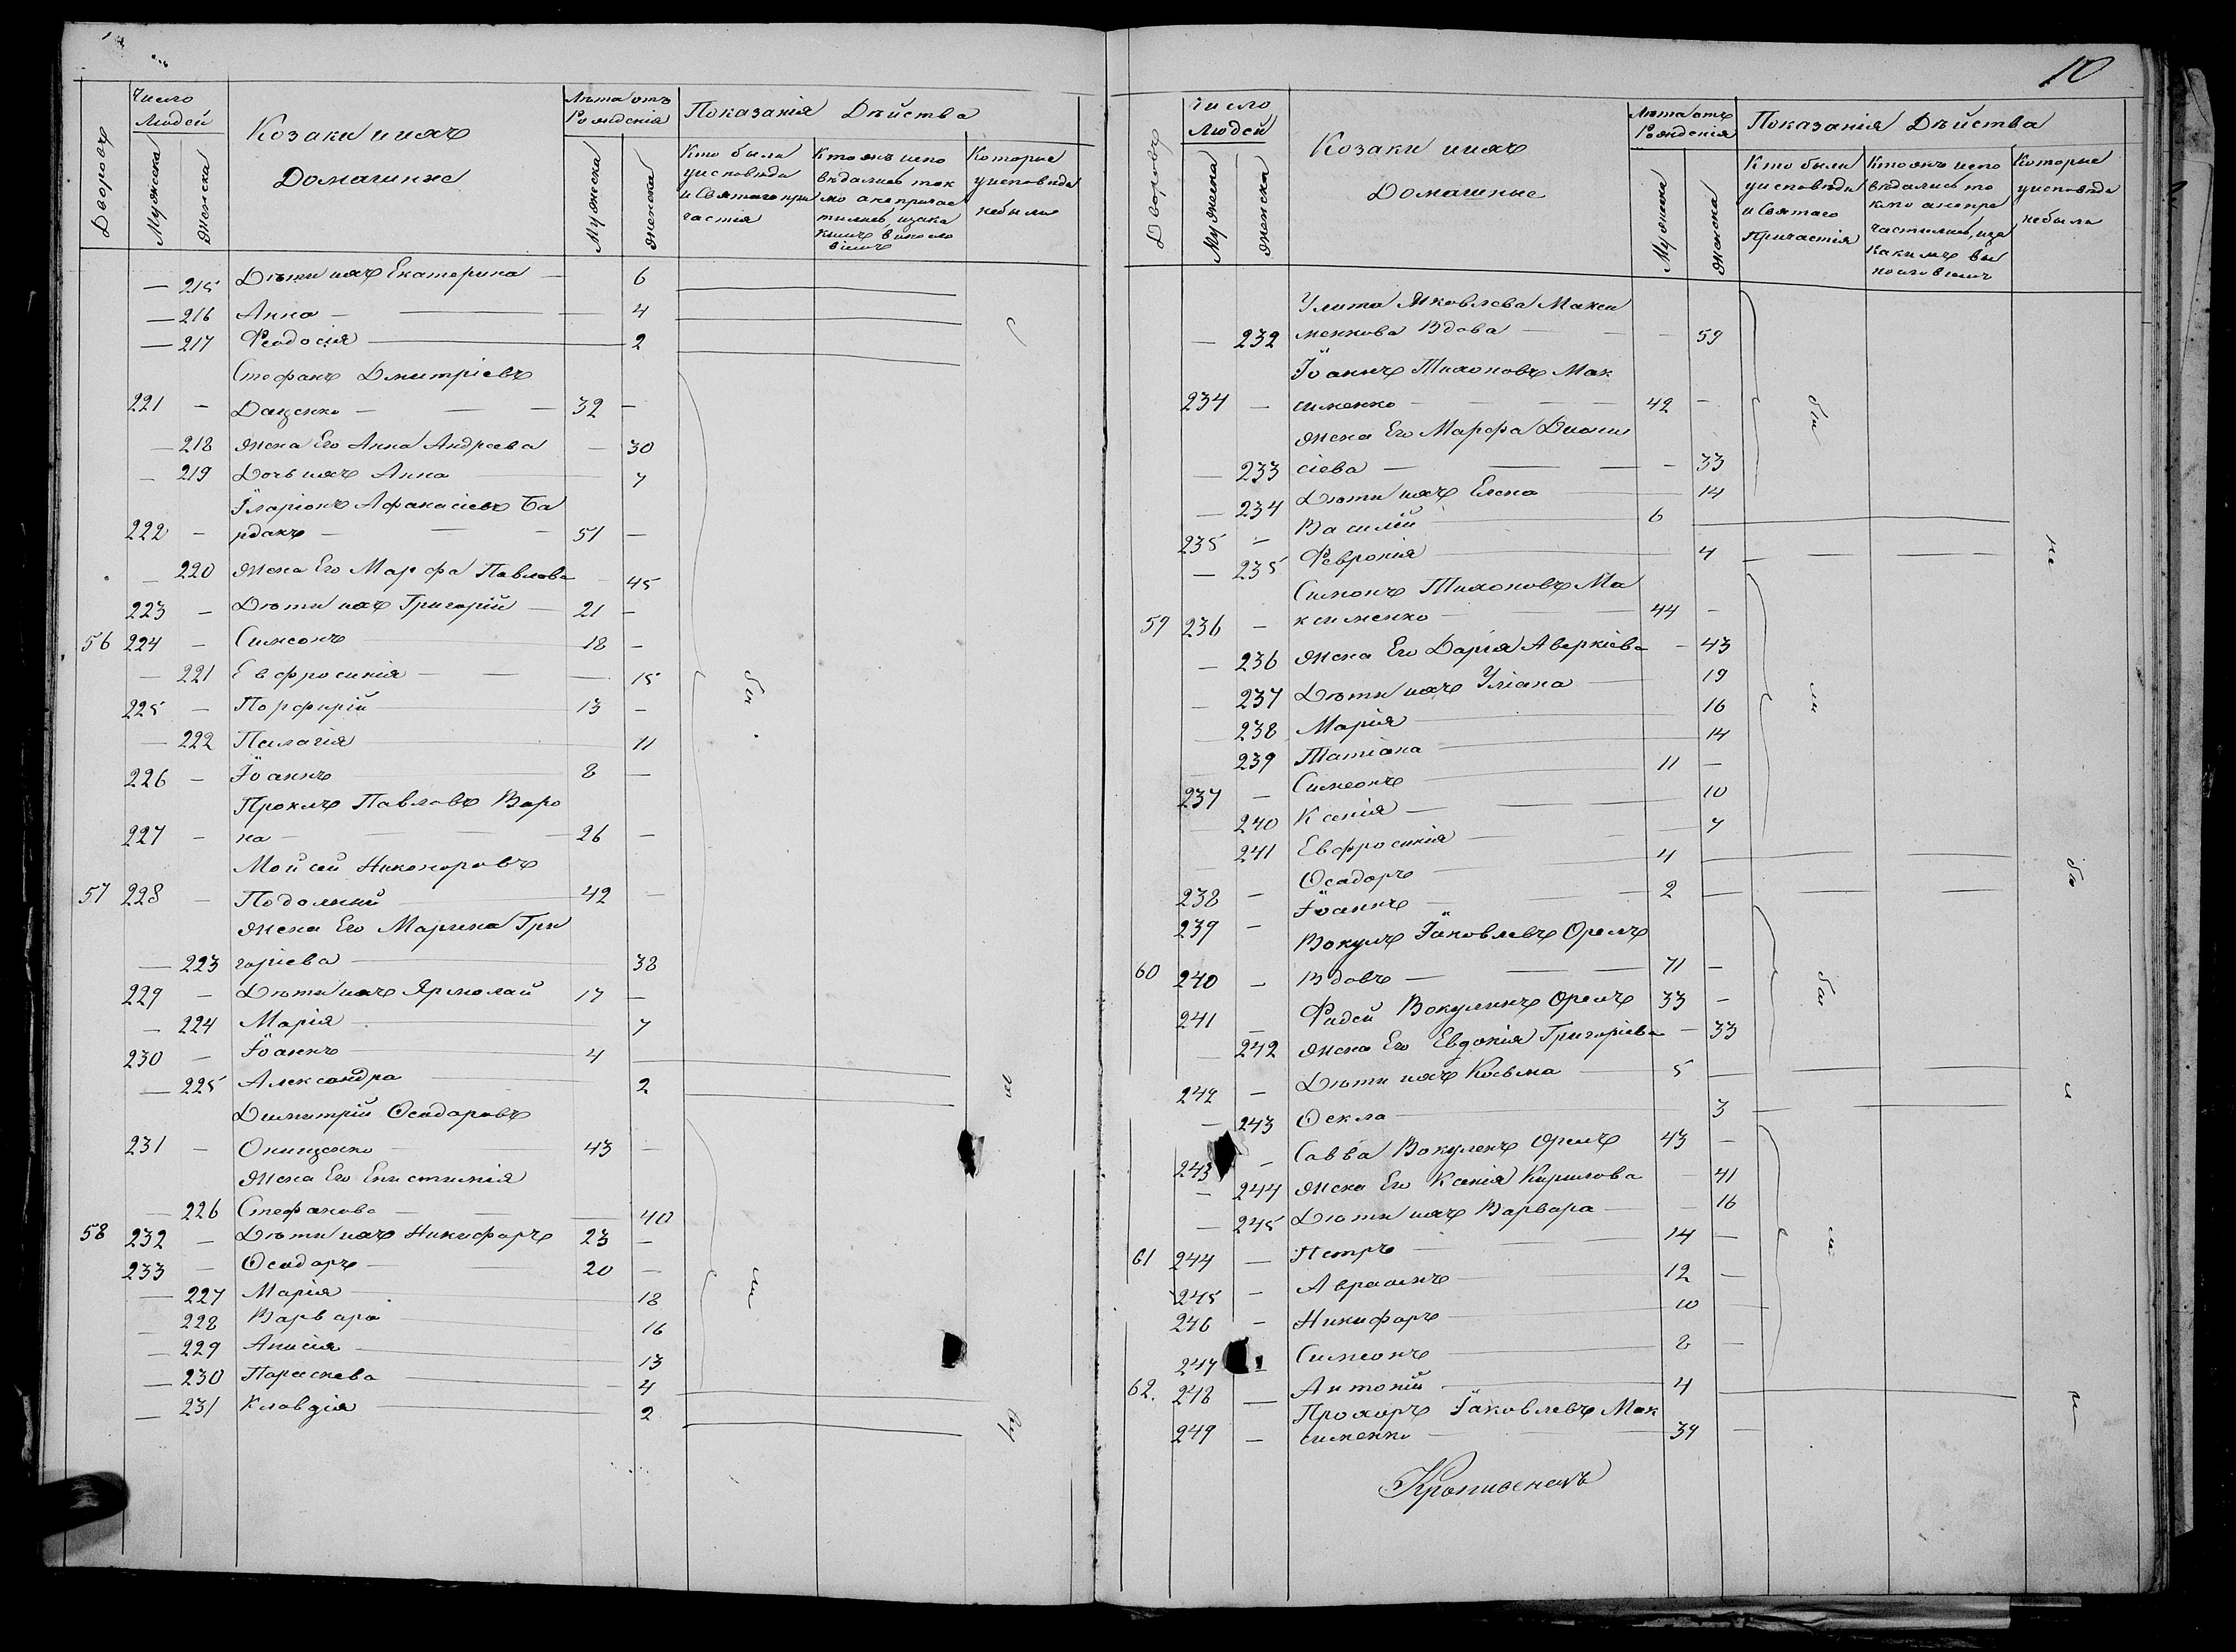 Дворовъ
Число
Людей
Мужеска
Женска
Козаки и ихъ
Домашние
Лѣта отъ
Рождения
Мужеска
Женска
Показанія Дѣйства
Кто были
у исповѣди
и Святаго при
частія
Кто жъ испо
вѣдались ток
мо а не причас
тились и за ка
кимъ винсло
віемъ
Которые
у исповѣди
небыли
— 215 Дѣти ихъ Екатерина — 6
— 216 Анна — 4
— 217 Феодосія — 2
Стефанъ Дмитріевъ
221 — Даценко — 32 —
— 218 Жена Его Анна Андреева — 30
— 219 Дочь ихъ Анна 7
Іларіонъ Афанасіевъ Ба
222 — ндакъ — 51 —
— 220 Жена Его Марфа Павлова — 45
223 — Дѣти ихъ Григорій — 21 —
56 224 — Симеонъ 18 —
— 221 Евфросинія — 15
225 — Порфирій 13 —
— 222 Пелагія 11
226 — Іоаннъ 8 —
Прокпъ Павловъ Воро
227 — на — 26 —
Мойсей Никоноровъ
57 228 — Подольний 42 —
Жена Его Марина Гри
— 223 горіева 38
229 — Дѣти ихъ Ярмолай 17 —
— 224 Марія 7
230 — Іоаннъ 4
— 225 Александра 2
Димитрій Фѣодоровъ
231 — Онищенко 43 —
Жена Его Епистимія
— 226 Стефанова — 40
58 232 — Дѣти ихъ Никифоръ 23 —
233 — Ѳеодоръ — 20 —
— 227 Марія 18
— 228 Варвара 16
— 229 Анисія 13
— 230 Параскева 4
— 231 Клавдія 2
10
Дворовъ
Число
Людей
Мужеска
Женска
Козаки и ихъ
Домашние
Лѣта отъ
Рожденія
Мужеска
Женска
Показанія Дѣйства
Кто были
у исповѣди
и Святаго
Причастія
Кто жъ испо
вѣдались то
кмо а не при
частились, и за
какимъ ви
нословіемъ
Которые
у исповѣди
небыли
Улита Яковлева Макси
— 232 менкова Вдова — 59
Іоаннъ Тихоновъ Мак
234 — сименко — 42 —
Жена Его Марфа Диони
— 233 сіева — 33
— 234 Дѣти ихъ Елена 14
235 — Василій 6
— 235 Февронія 4
Симонъ Тихоновъ Ма
59 236 — ксименко — 44 —
— 236 Жена Его Дарія Аверкіева — 43
— 237 Дѣти ихъ Уліана 19
238 Марія 16
239 Татіана 14
237 — Симеонъ 11 —
240 Ксенія — 10
241 Евфросинія — 7
238 — Ѳеодоръ 4
239 — Іоаннъ — 2
Вокулъ Іаковлевъ Орелъ
60 240 — Вдовъ — 71 —
241 — Фадей Вокулинъ Орелъ 33 —
— 242 Жена Его Евдокія Григоріева — 33
242 — Дѣти ихъ Косьма 5
— 243 Ѳекла 3
243 — Савва Вокуленъ Орелъ 43 —
— 244 Жена Его Ксенія Кирилова — 41
— 245 Дѣти ихъ Варвара — 16
61 244 — Петръ — 14 —
245 — Авраамъ 12 —
246 — Никифоръ 10 —
247 — Симеонъ 8 —
62. 248 — Антоній 4
Прохоръ Іаковлевъ Мак
249 — сименко — 39 —